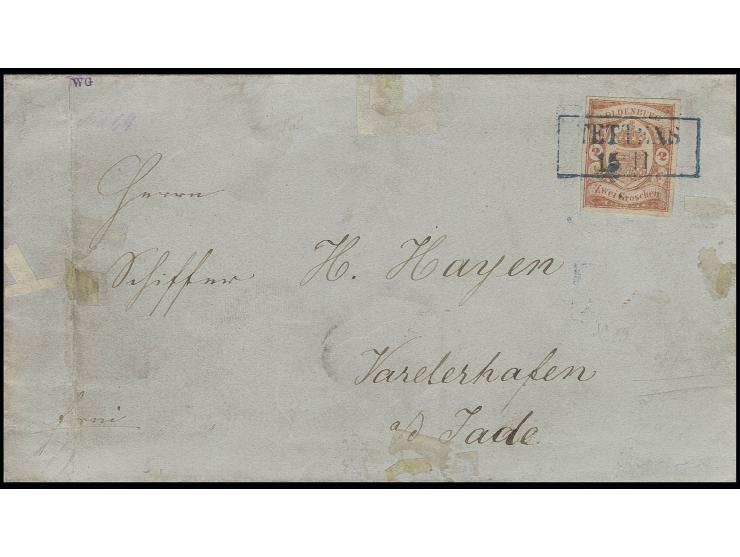 WG
OLDENBURG
TETTENS
15 11
2 2
Zwei Groschen
Herrn
Schiffer H. Hayen
Varelerhafen
a/d Jade
frei